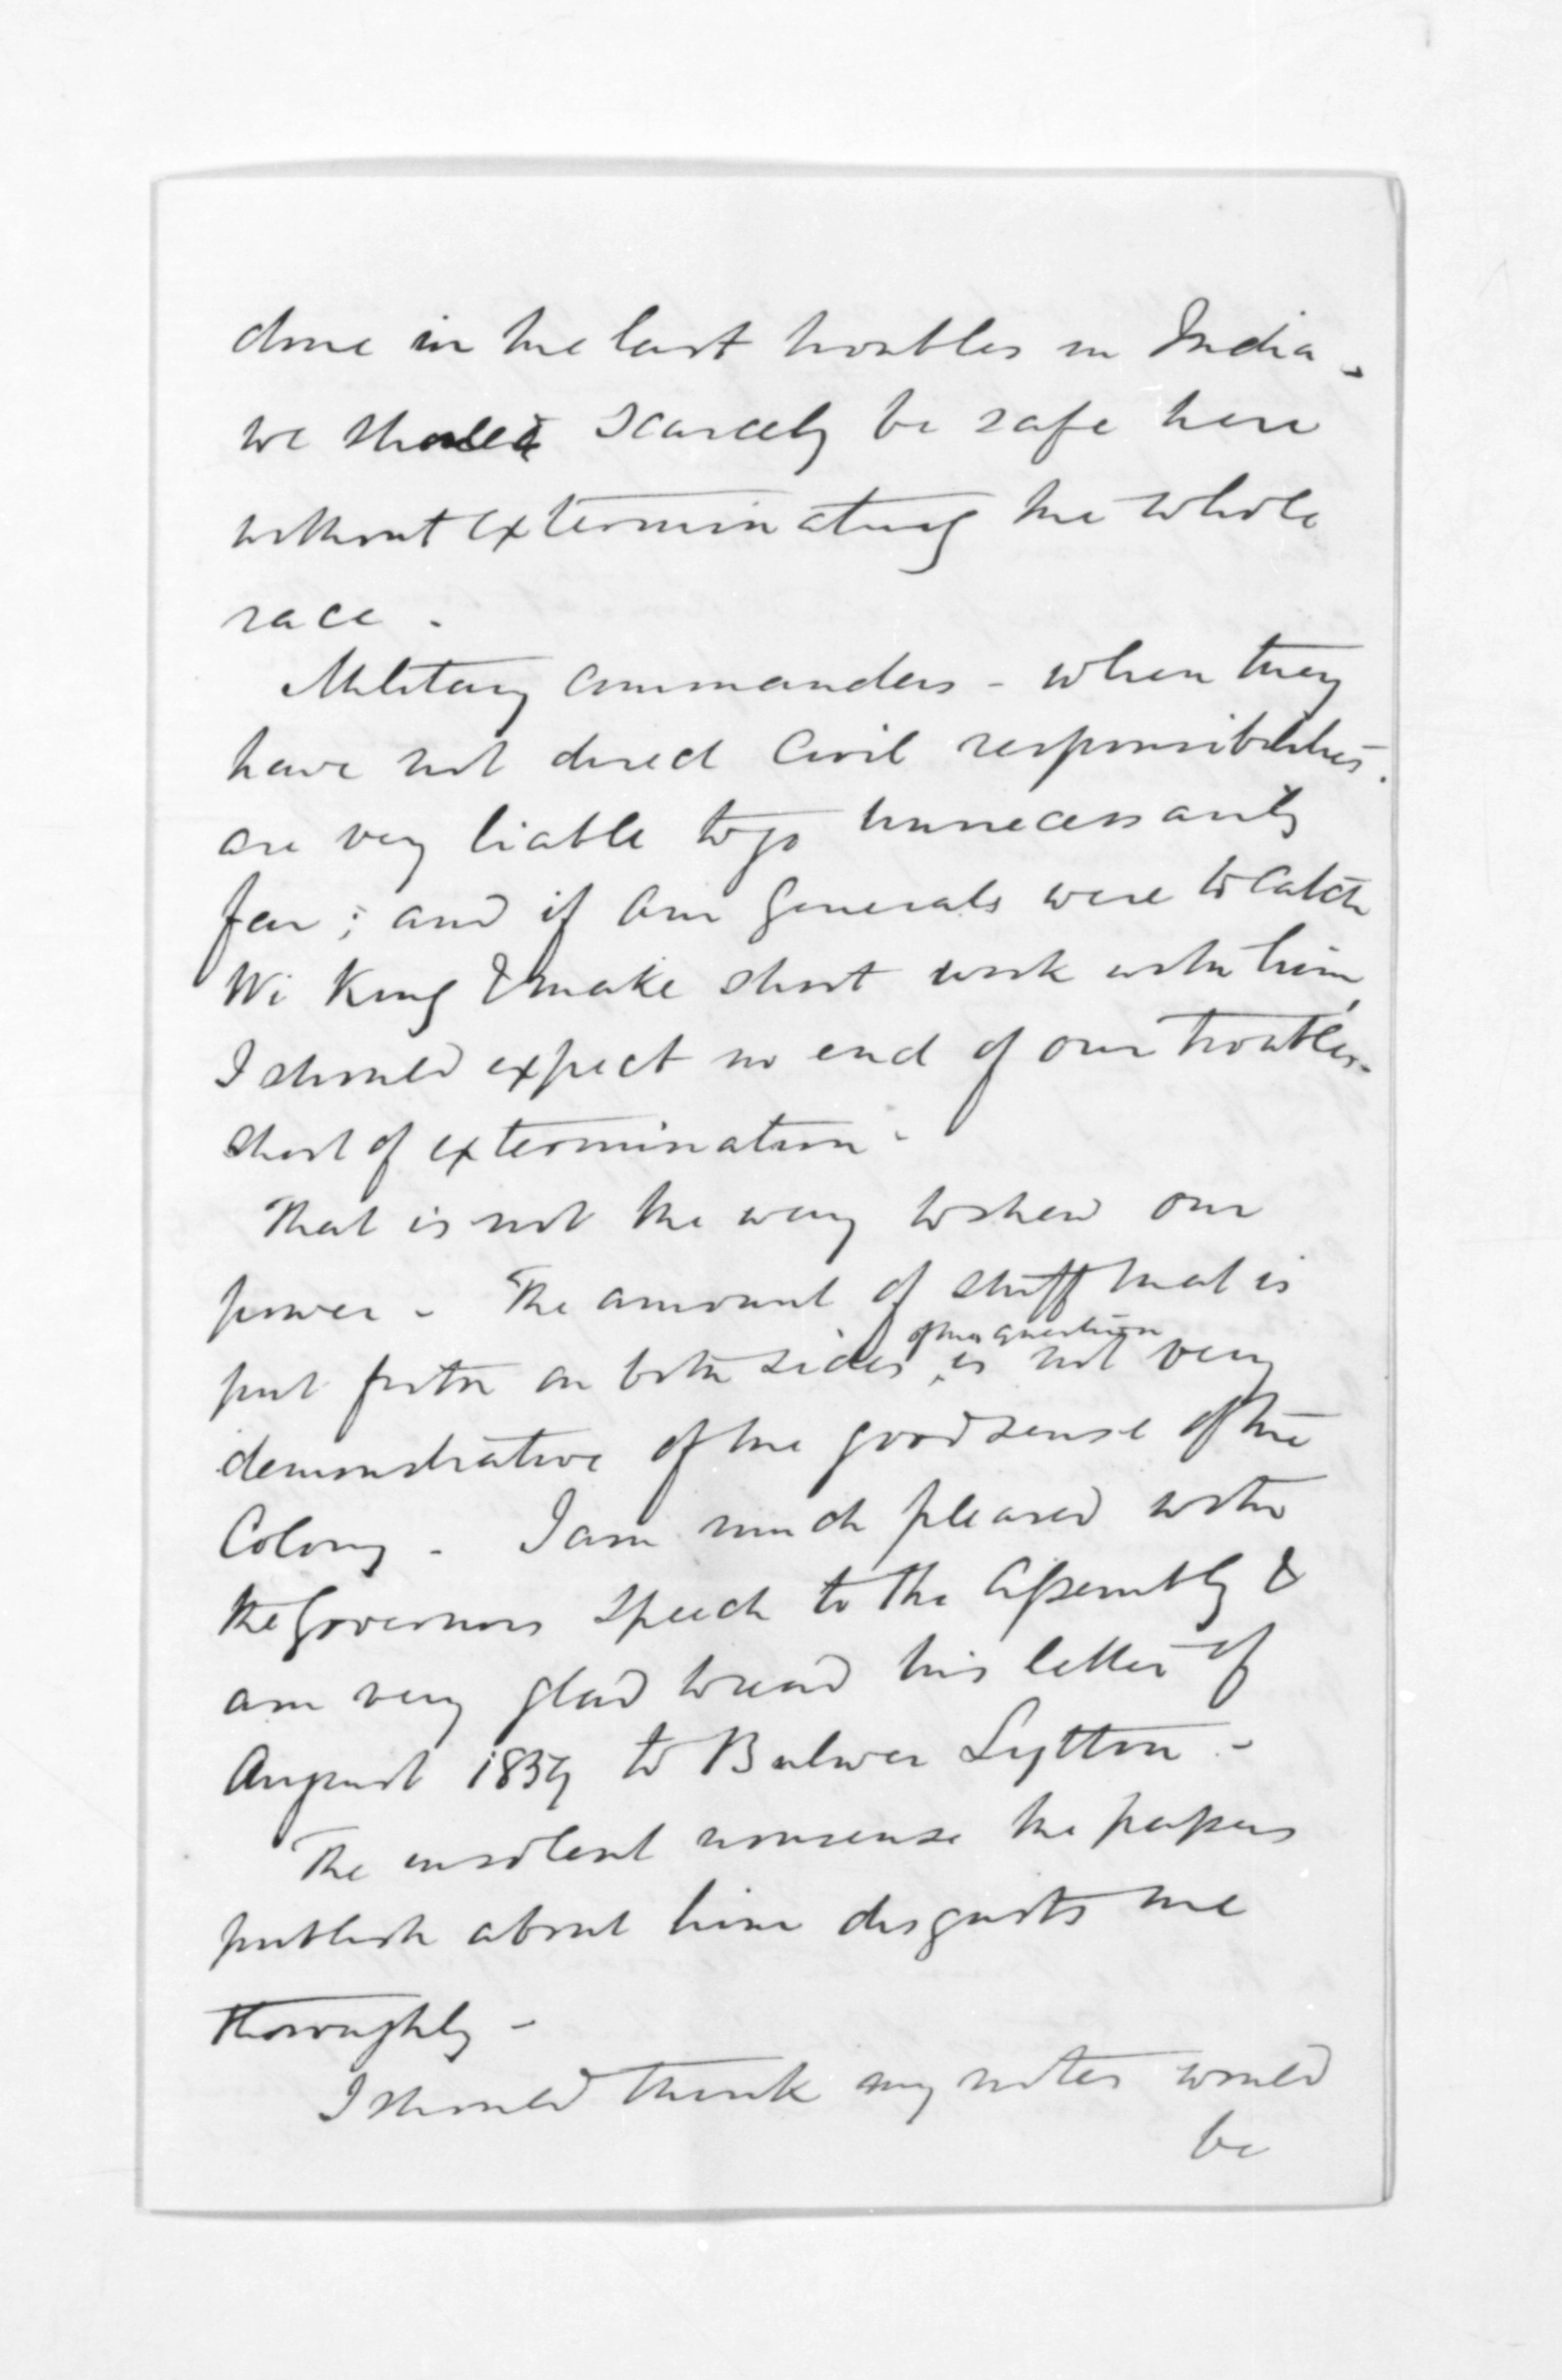 done in the last troubles in India -
we should scarcely be safe here
without exterminating the whole
race -
Military Commanders - when they
have not direct Civil responsibilities.
are very liable to go unnecessarily
far; and if our Generals were to catch
Wi King & make short work with him,
I should expect no end of our troubles -
short of extermination -
That is not the way to shew our
power - The amount of stuff that is
of this question
put forth on both sides ^ is not very
demonstrative of the good sense of the
Colony - I am much pleased with
the Governors speech to the Assembly &
am very glad to read his letter of
August 1859 to Bulwer Lytton -
The insolent nonsense the papers
publish about him disgusts me
thoroughly -
I should think my notes would
be